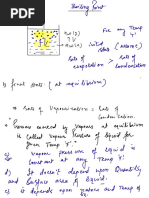 Boiling Point
H₂O(g)
H₂O(l)
Fix my Temp 'T'
initial state (assume)
Rate of evaporation > Rate of Condensation
b) final state (at equilibrium)
* Rate of Vaporisation = Rate of Condensation.
* "Pressure exerted by vapours equilibrium is called vapour pressure of liquid for given Temp 'T'."
* vapour pressure of liquid is constant at any Temp T.
d) It doesn't depend upon Quantity and surface area of liquid.
c) it depends upon nature and Temp of